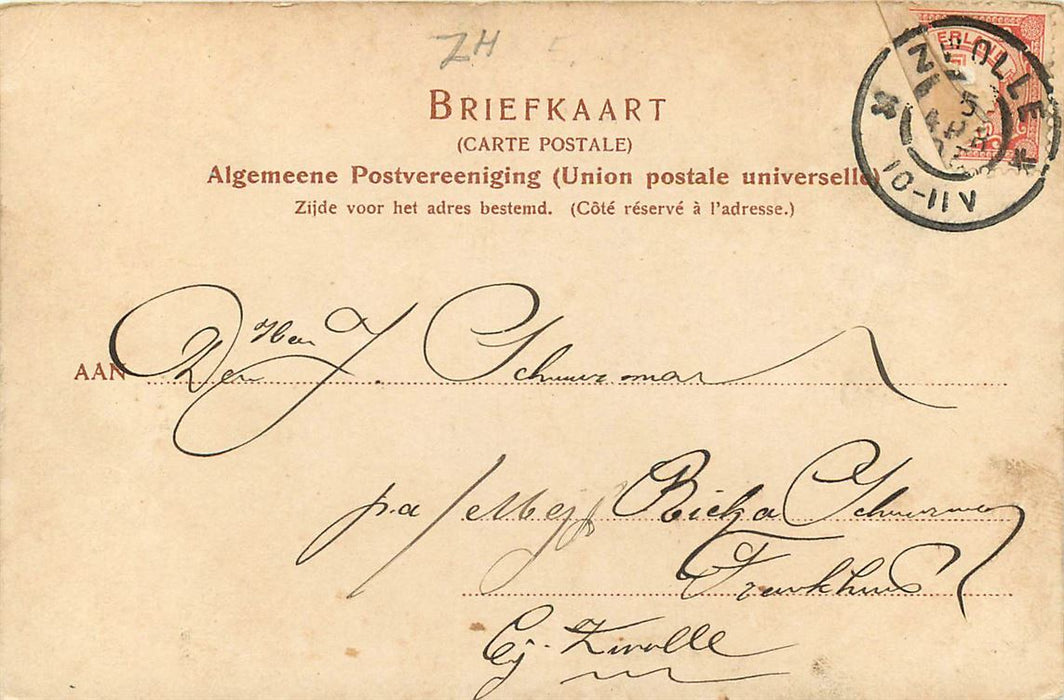 ZH
BRIEFKAART
(CARTE POSTALE)
Algemeene Postvereeniging (Union postale universelle)
Zijde voor het adres bestemd. (Côté réservé à l'adresse.)
ZWOLLE
5
APR
10-11V
AAN Den Heer J. Schuurman
p.a / Mej Schuurman
Frankhuis
Bij Zwolle